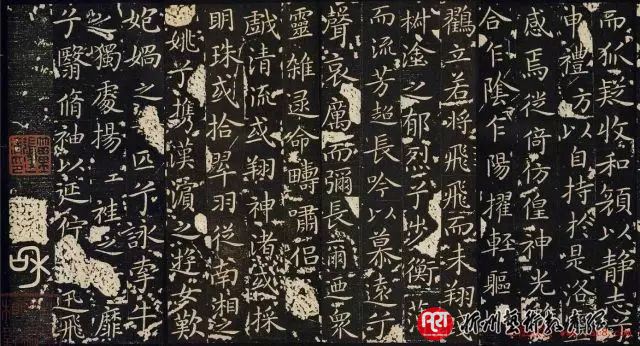 而狐疑收和顏以静志兮
申禮方以自持於是洛
感焉徙倚彷徨神光
合乍陰乍陽擢輕軀
鸖立若將飛飛而未翔
椒塗之郁烈兮步衡薄
而流芳超長吟以慕遠兮
聲哀厲而彌長爾迺眾
靈雜遝命疇嘯侶
戲清流或翔神渚或採
明珠或拾翠羽從南湘之
姚兮攜漢濱之遊女歎
妃媧之匹兮詠牽牛
之獨處揚袿之靡
兮翳脩袖以延佇迅飛